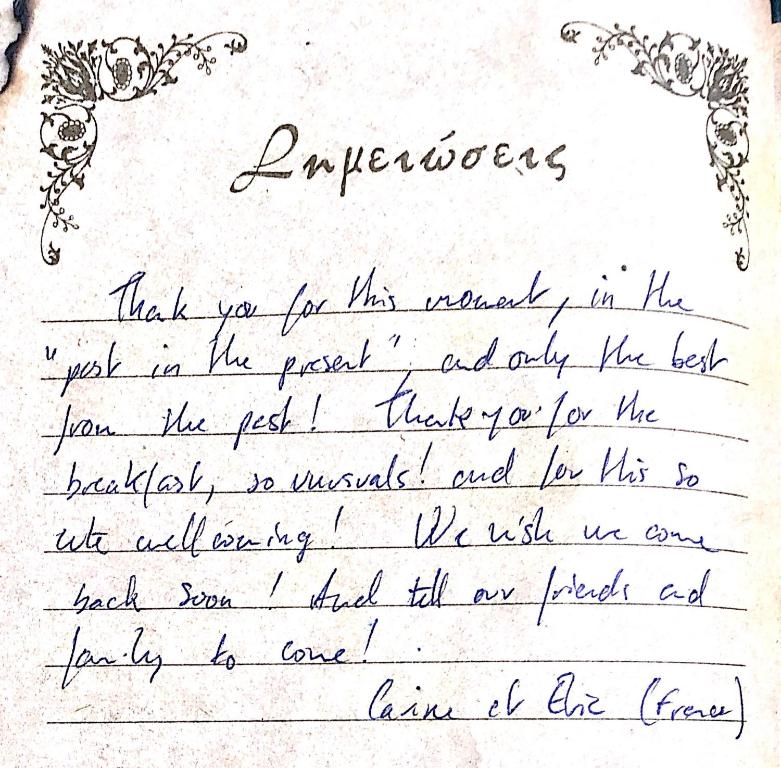 Σημειώσεις
Thank you for this moment, in the
"past in the present", and only the best
from the past! Thank you for the
breakfast, so unusuals! and for this so
cute wellcoming! We wish we come
back soon! And tell our friends and
family to come!
et Eric (France)